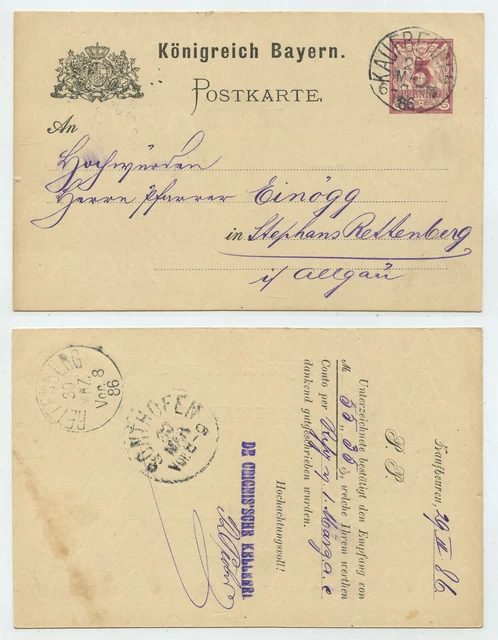 Königreich Bayern.
POSTKARTE.
KAUFBEUREN
5
86
An
Hochwürden
Herrn Pfarrer Einögg
in Stephans Rettenberg
i/ Allgäu
Kaufbeuren, 29 III 86
P. P.
Unterzeichnete bestätigt den Empfang von
M 55 38 ₰, welche Ihrem werthen
Conto per
dankend gutgeschrieben wurden.
Hochachtungsvoll!
DR. KELLEREI
SONTHOFEN
30
MRZ
Vor. 8
RETTENBERG
30
MRZ.
Vor. 8
86